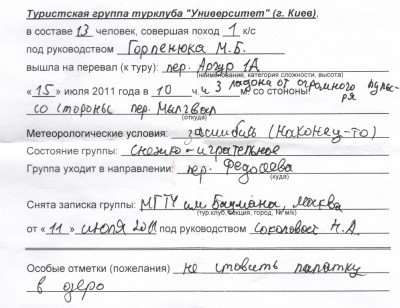 Туристская группа турклуба "Университет" (г. Киев),
в составе 13 человек, совершая поход 1 к/с
под руководством Горпенюка М.Б.
вышла на перевал (к туру): пер. Арзур 1А
(наименование, категория сложности, высота)
«15» июля 2011 года в 10 ч. и 3 ладона от огромного пульса- м. со стононы:
ря
со стороны пер. Мылгвал
(откуда)
Метеорологические условия: зашибись (наконец-то)
Состояние группы: снежко-игрательное
Группа уходит в направлении: пер. Федосеева
(куда)
Снята записка группы: МГТУ им. Баумана, Москва
(тур.клуб, секция, город, № м/к)
от «11» июля 2011 под руководством Соколовой Н.А.
Особые отметки (пожелания) не ставить палатку
в озеро